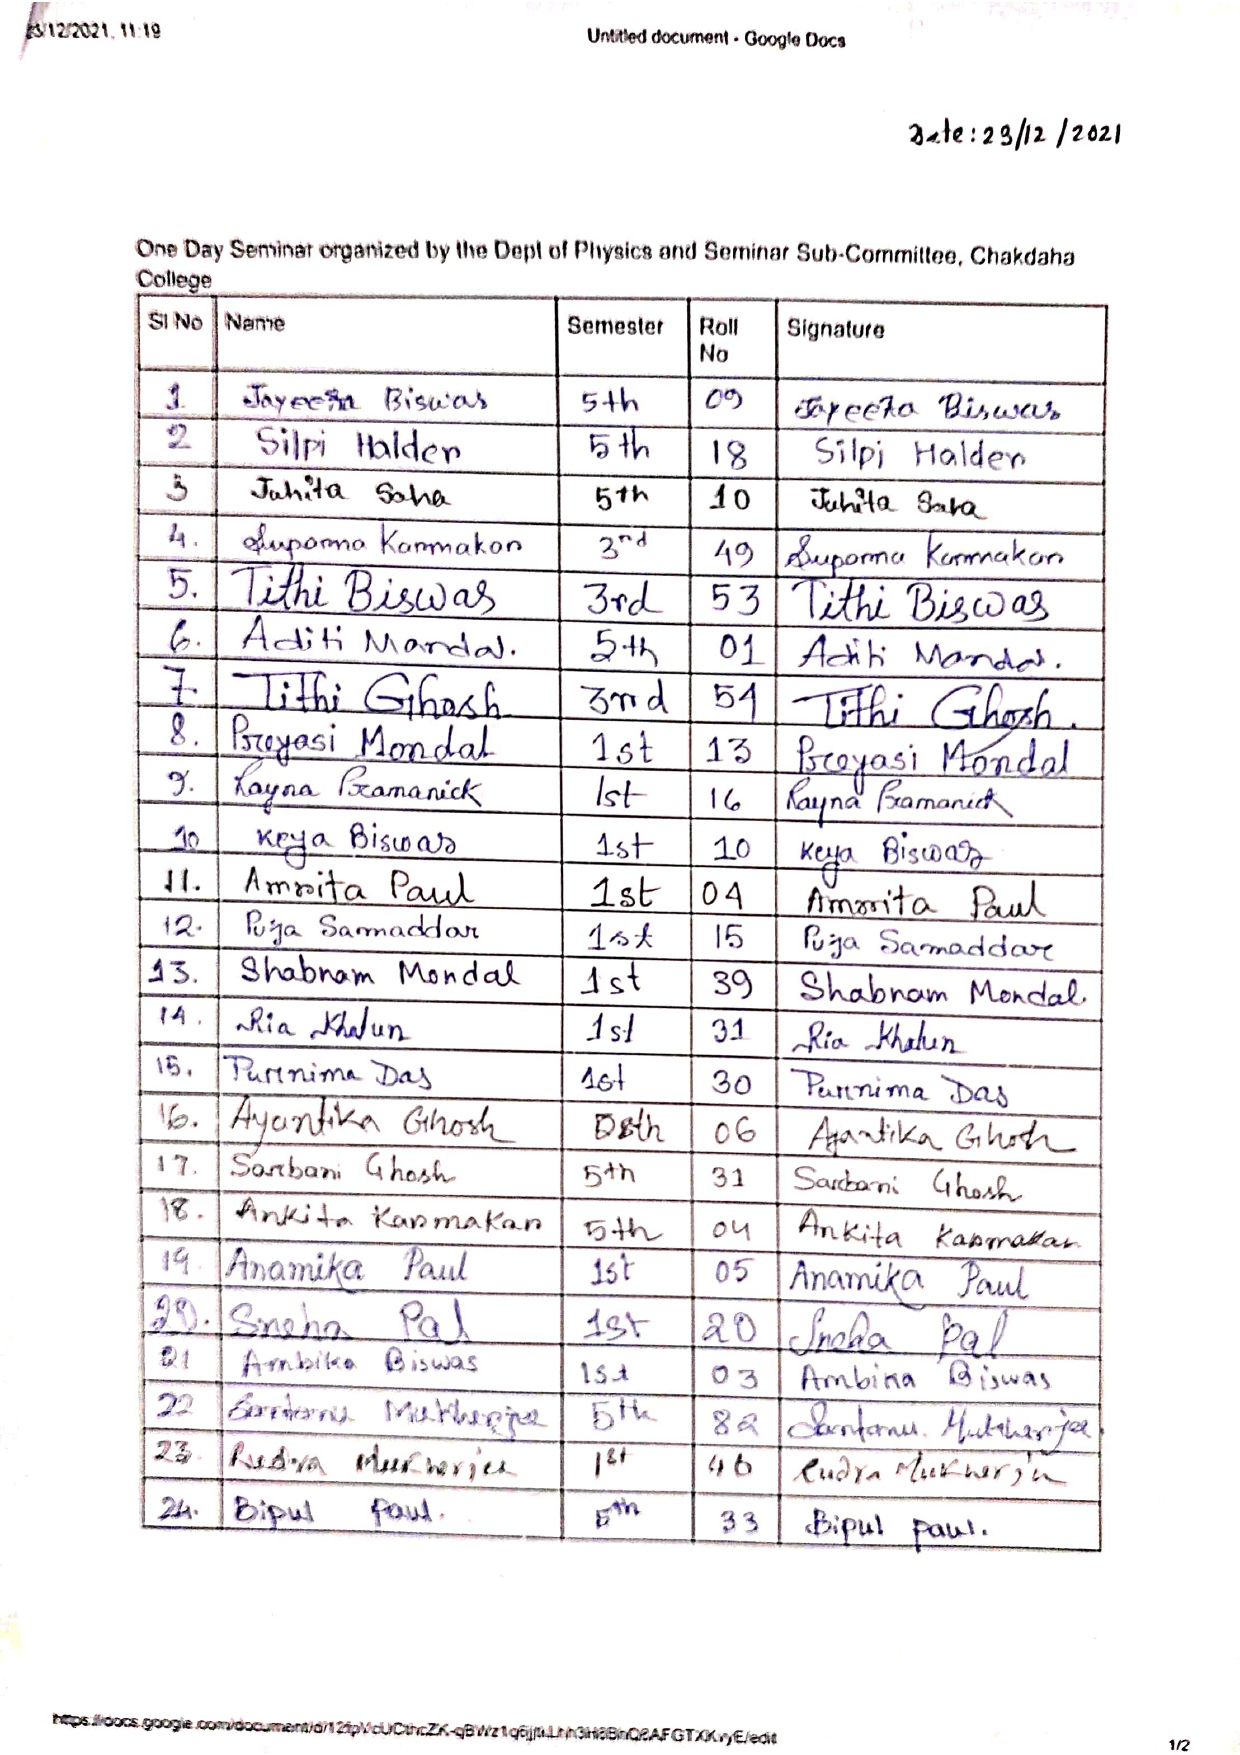 23/12/2021, 11:19 Untitled document - Google Docs
Date: 23/12/2021
One Day Seminar organized by the Dept of Physics and Seminar Sub-Committee, Chakdaha
College
Sl No Name Semester Roll No Signature
1. Jayeeta Biswas 5th 09 Jayeeta Biswas
2 Silpi Halder 5th 18 Silpi Halder
3 Juhita Saha 5th 10 Juhita Saha
4. Suporna Karmakar 3rd 49 Suporna Karmakar
5. Tithi Biswas 3rd 53 Tithi Biswas
6. Aditi Mandal. 5th 01 Aditi Mandal.
7. Tithi Ghosh 3rd 54 Tithi Ghosh.
8. Preyasi Mondal 1st 13 Preyasi Mondal
9. Rayna Pramanick 1st 16 Rayna Pramanick
10 Keya Biswas 1st 10 Keya Biswas
11. Amrita Paul 1st 04 Amrita Paul
12. Puja Samaddar 1st 15 Puja Samaddar
13. Shabnam Mondal 1st 39 Shabnam Mondal.
14. Ria Khatun 1st 31 Ria Khatun
15. Purnima Das 1st 30 Purnima Das
16. Ayantika Ghosh 06 Ayantika Ghosh
17. Sarbani Ghosh 5th 31 Sarbani Ghosh
18. Ankita Karmakar 5th 04 Ankita Karmakar
19. Anamika Paul 1st 05 Anamika Paul
20. Sneha Pal 1st 20 Sneha Pal
21 Ambika Biswas 1st 03 Ambika Biswas
22 Santanu Mukherjee 5th 82 Santanu Mukherjee
23. Rudra Mukherjee 1st 46 Rudra Mukherjee
24. Bipul Paul. 5th 33 Bipul Paul.
1/2